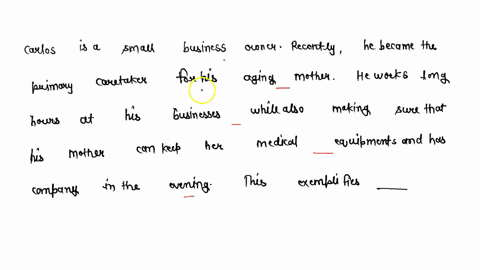 Carlos is a small business owner. Recently, he became the
primary caretaker for his aging mother. He works long
hours at his businesses while also making sure that
his mother can keep her medical equipments and has
company in the evening. This exemplifies ____